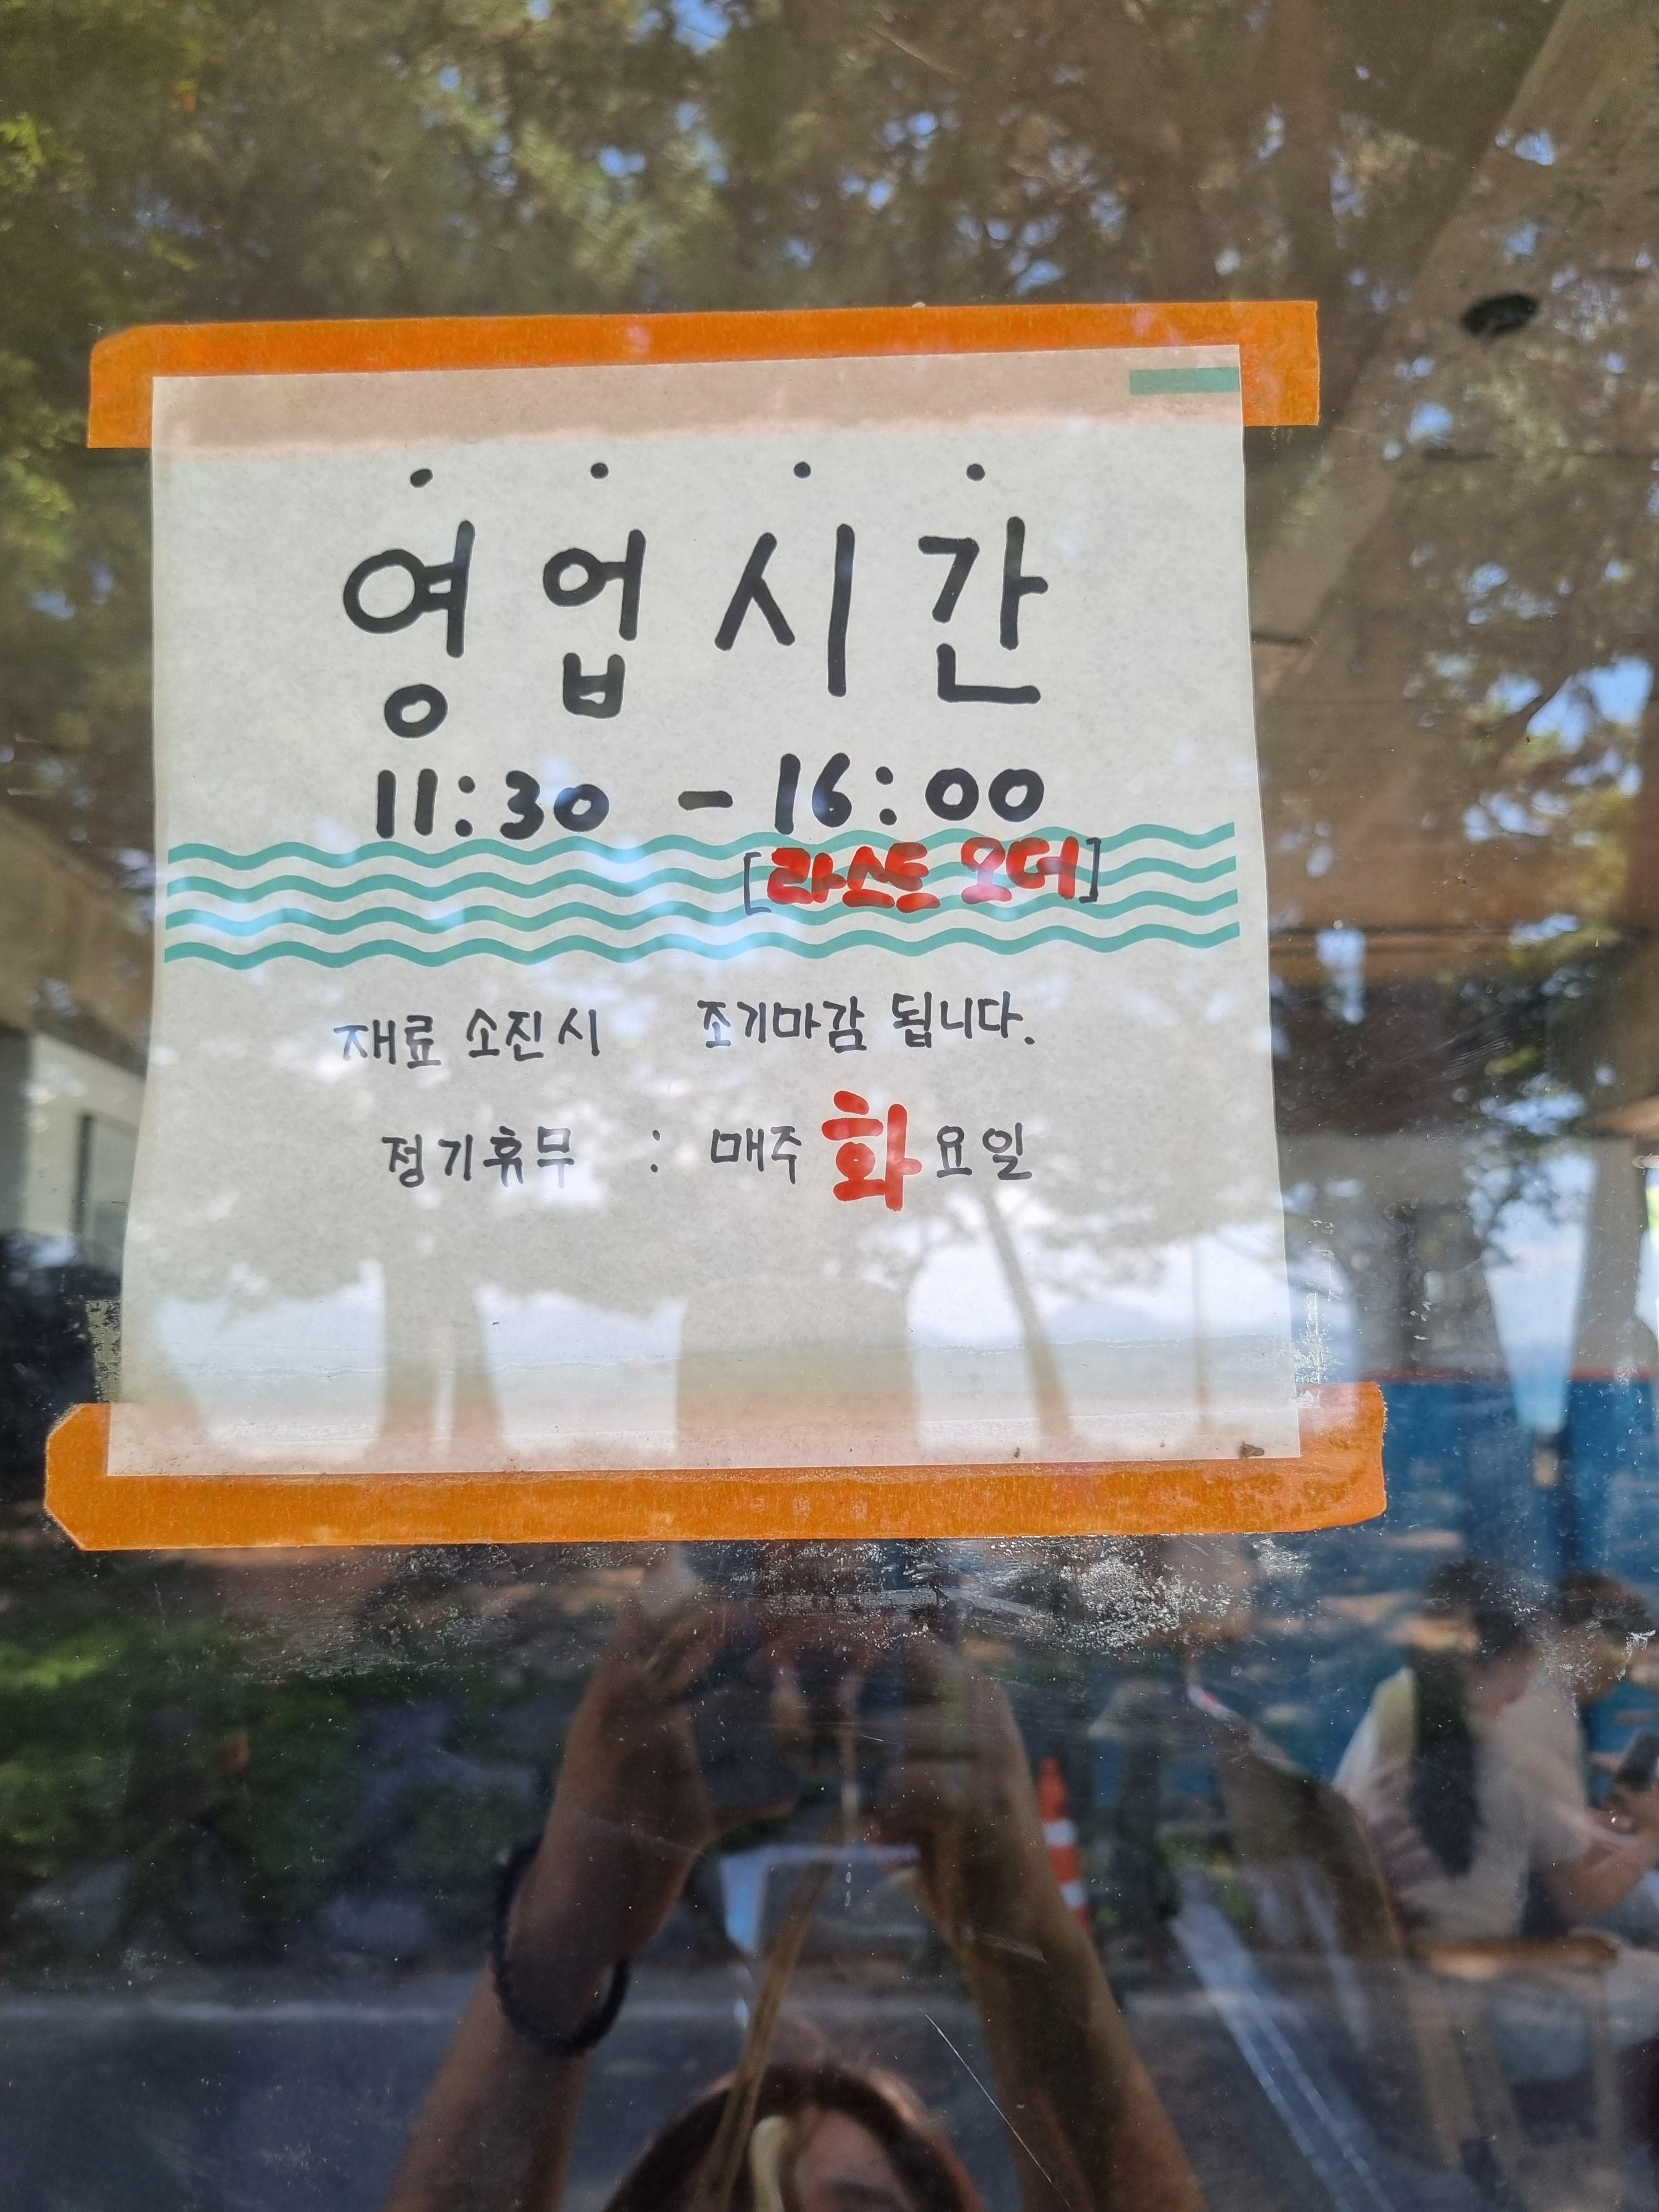 영업시간
11:30 - 16:00
[라스트 오더]
재료 소진시 조기마감 됩니다.
정기휴무 : 매주 화요일